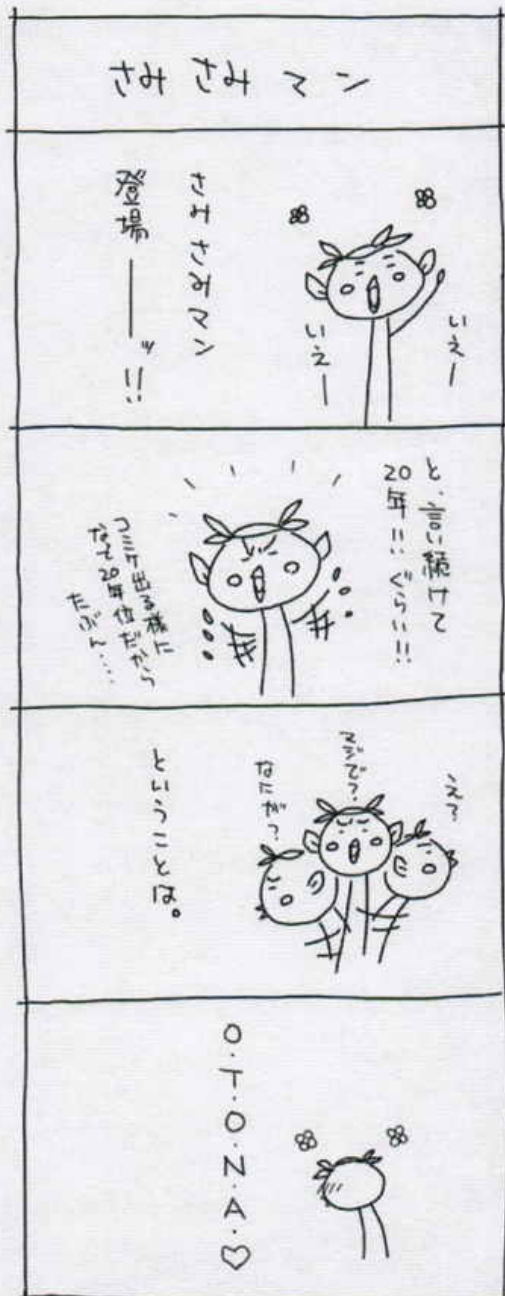 さみさみマン
いえー
いえー
さみさみマン
登場――ッ!!
と、言い続けて
20年!!ぐらい!!
コミケ出る様に
なって20年位だから
たぶん‥‥
え?
マジで?
なにが?
ということは。
O・T・O・N・A・♡